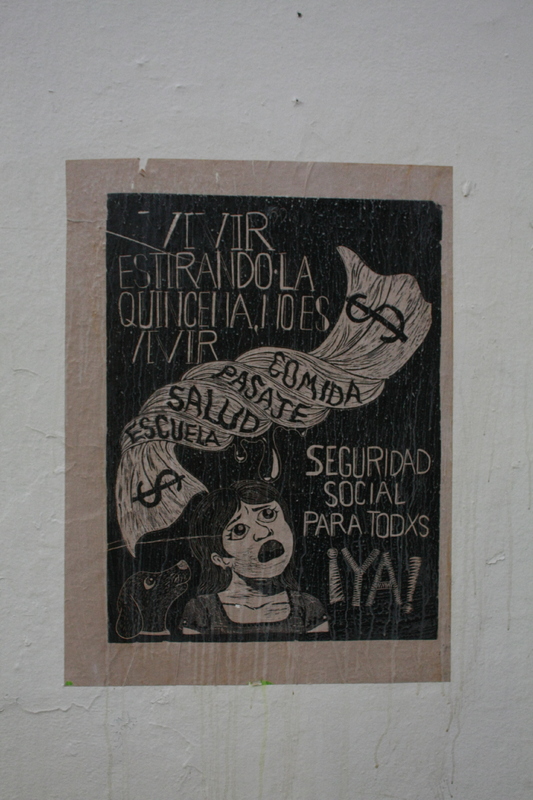 VIVIR
ESTIRANDO LA
QUINCENA, NO ES
VIVIR
$
COMIDA
PASAJE
SALUD
ESCUELA
$
SEGURIDAD
SOCIAL
PARA TODXS
¡YA!